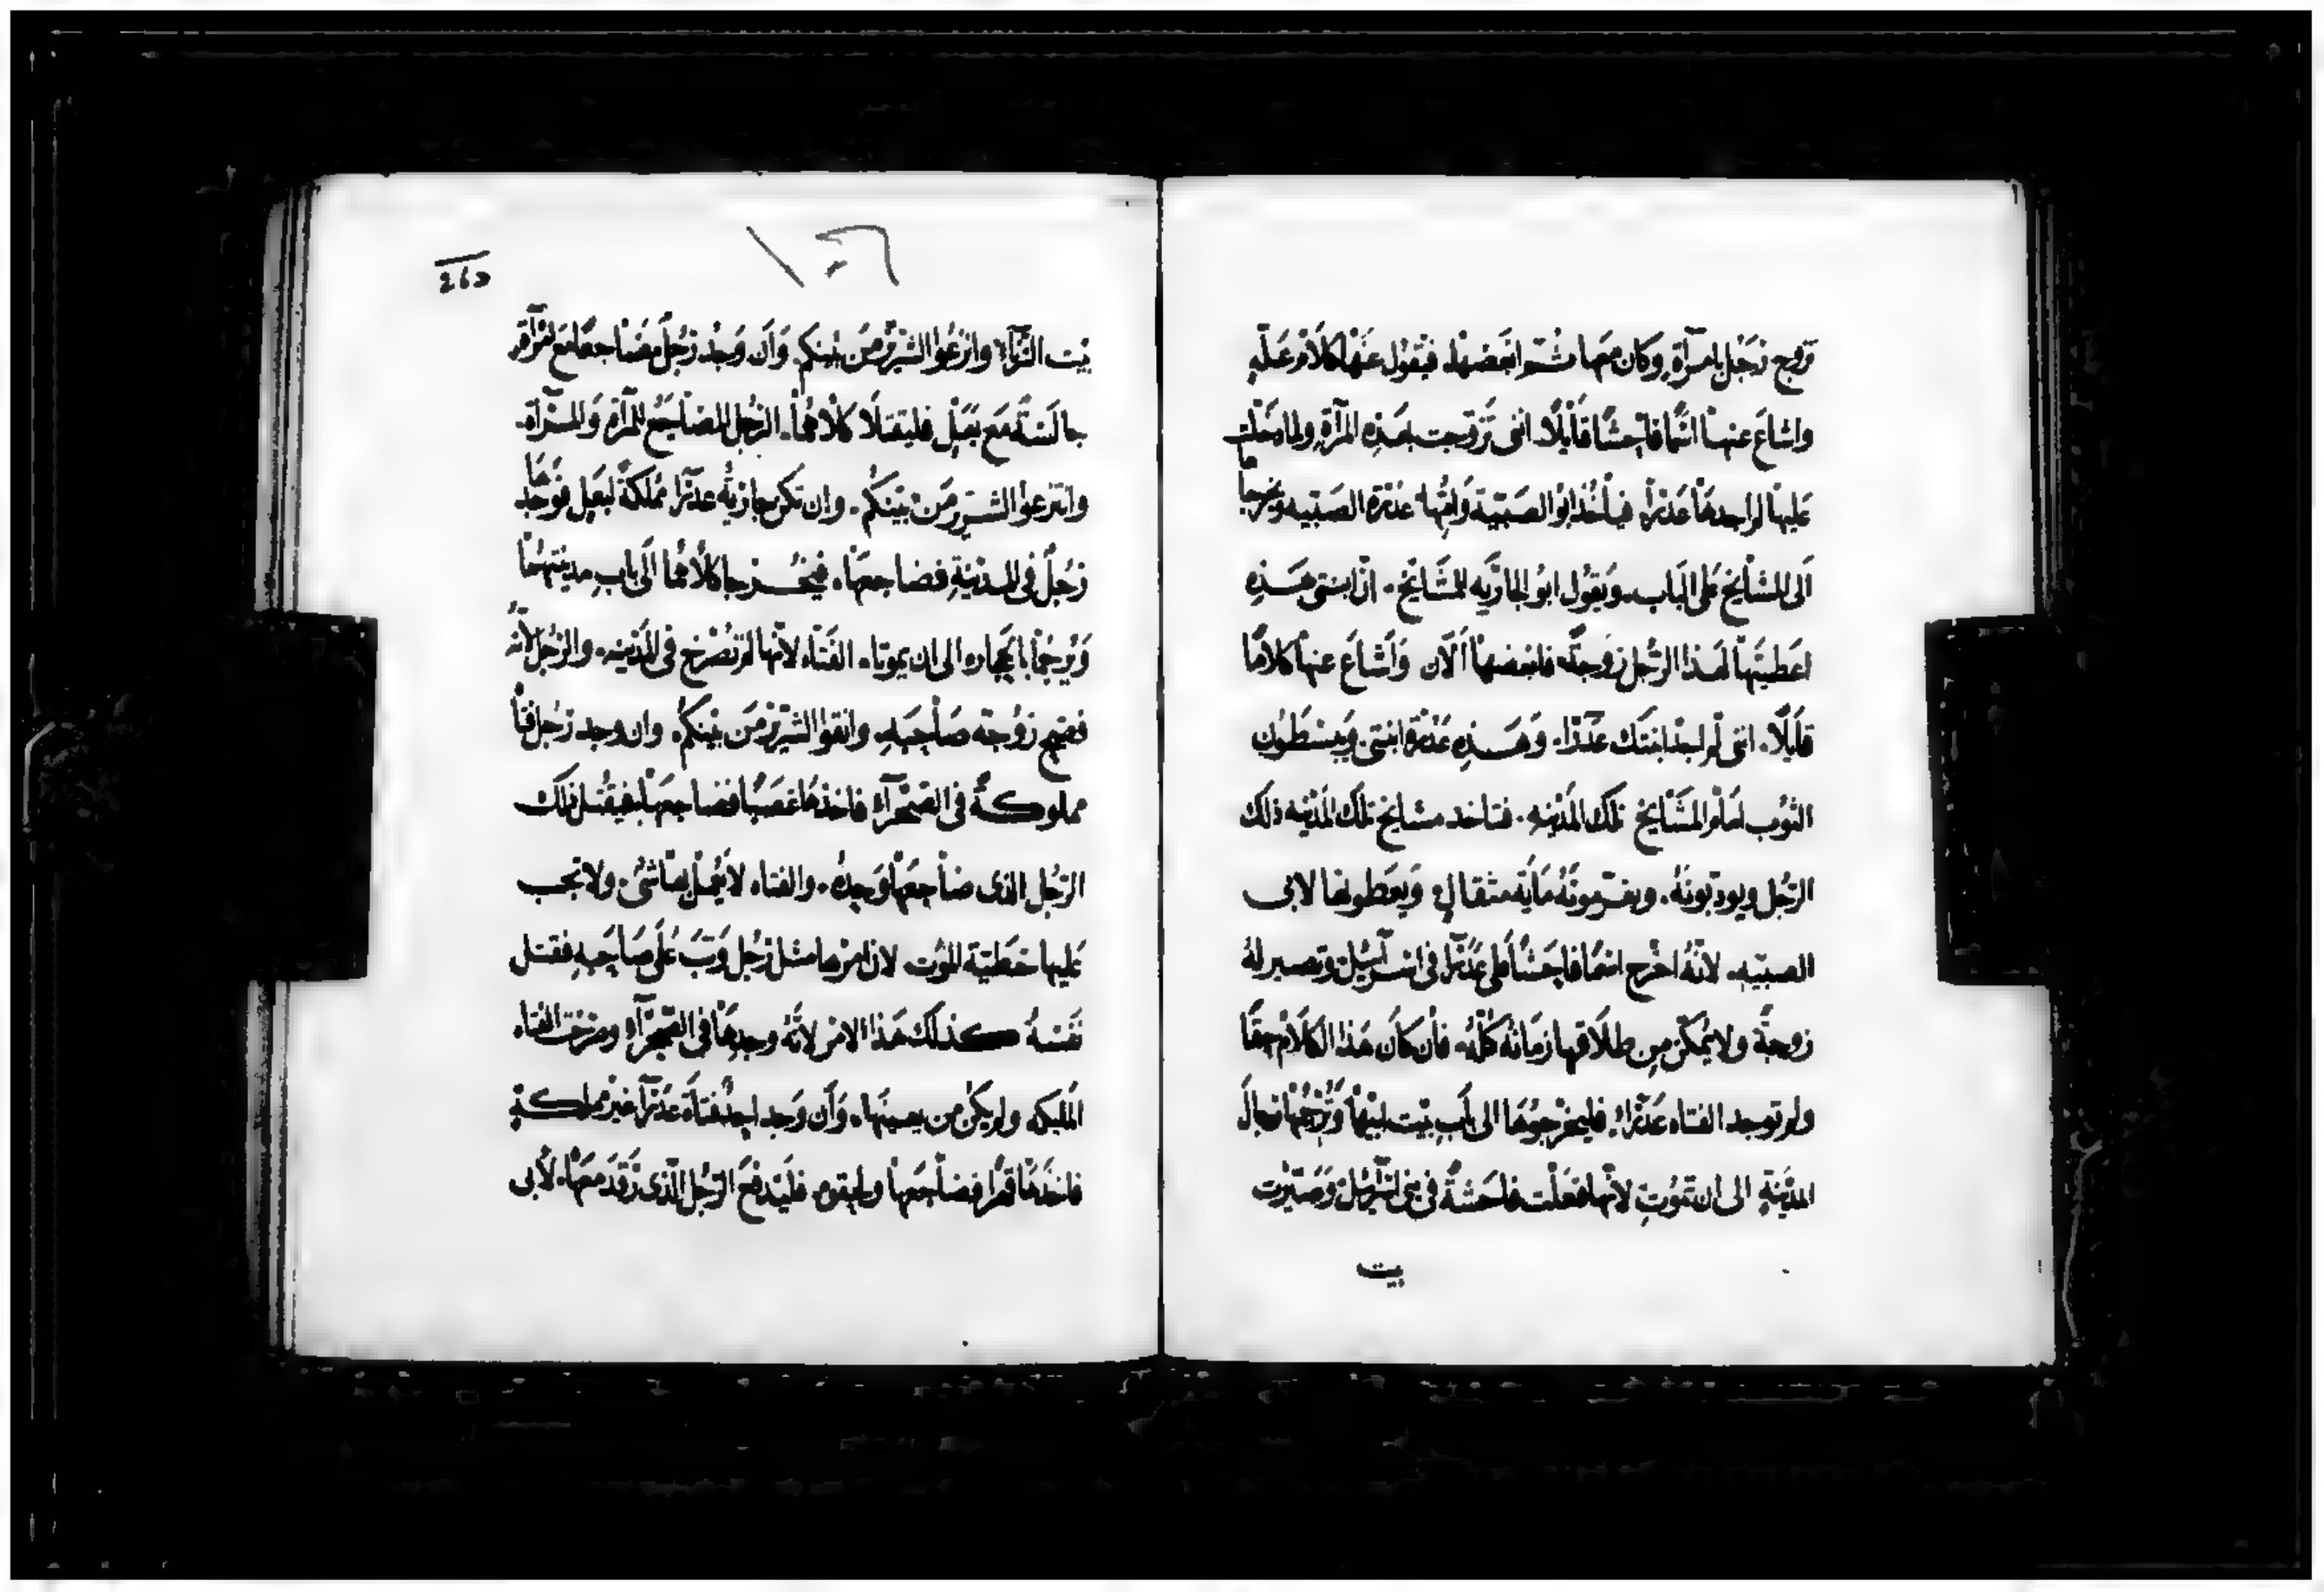 تزوج رَجُل بامرَآةٍ وكان معها ثُم ابغضها. فيَقول عَنها كلام علّه
واشاع عنها اسمًا فاحشًا قايلًا. انى تزوجت بهذه المرآة ولما دخلت
عليها لم اجدها عذرآ. فياخذ ابو الصبية وامها عذرة الصبيه ويخرجا
الى المشايخ على الباب. ويقول ابو الجاريه للمشايخ. ان ابنتى هذه
اعطيتها لهذا الرجل زوجة فابغضها الآن واشاع عنها كلامًا
قايلًا. انى لم اجد ابنتك عذرآ. وهذه عذرة ابنتى. ويبسطون
الثوب امام المشايخ تلك المدينه. فتاخد مشايخ تلك المدينه ذلك
الرجل ويودبونه. ويغرمونه مايه مثقال ويعطونها لابى
الصبيه. لانه اخرج اسمًا فاحشًا على عذرآ فى اسرآييل وتصير له
زوجة ولا يمكن من طلاقها زمانه كله. فان كان هذا الكلام حقًا
ولم توجد الفتاه عذرآء. فليخرجوها الى باب بيت ابيها وترجمها رجال
المدينة الى ان تموت لانها فعلت فاحشة فى بنى اسرآييل وصيرت
بيت
١٥٦
265
بيت الزناء وانزعوا الشرير من بينكم. وان وجد رجل مضاجعا مع امرآة
جالسة مع بعل فليقتلا كلاهما. الرجل المضاجع المرآة والمرآة.
وانتزعوا الشرير من بينكم. وان تكن جاريه عذرآ مملكة لبعل فوجدها
رجل فى المدينة فضاجعها. فيخرجا كلاهما الى باب مدينتهما
ويرجما بالحجاره الى ان يموتا. الفتاه لانها لم تصرخ فى المدينه. والرجل لانه
فضح زوجة صاحبه. وانفوا الشرير من بينكم. وان وجد رجل فتاة
مملوكة فى الصحرآء فاخذها غصبًا فضاجعها. فيقتل ذلك
الرجل الذى ضاجعها وحده. والفتاه لا يعمل بها شئ. ولا تجب
عليها خطية الموت. لان امرها مثل رجل وثب على صاحبه فقتل
نفسه كذلك هذا الامر لانه وجدها فى الصحرآء وصرخت الفتاه
المملكه ولم يكن من يعينها. وان وجد احد فتاة عذرآ غير مملكة
فاخذها قهرا فضاجعها ولحقوه. فليدفع الرجل الذى رقد معها. لابى